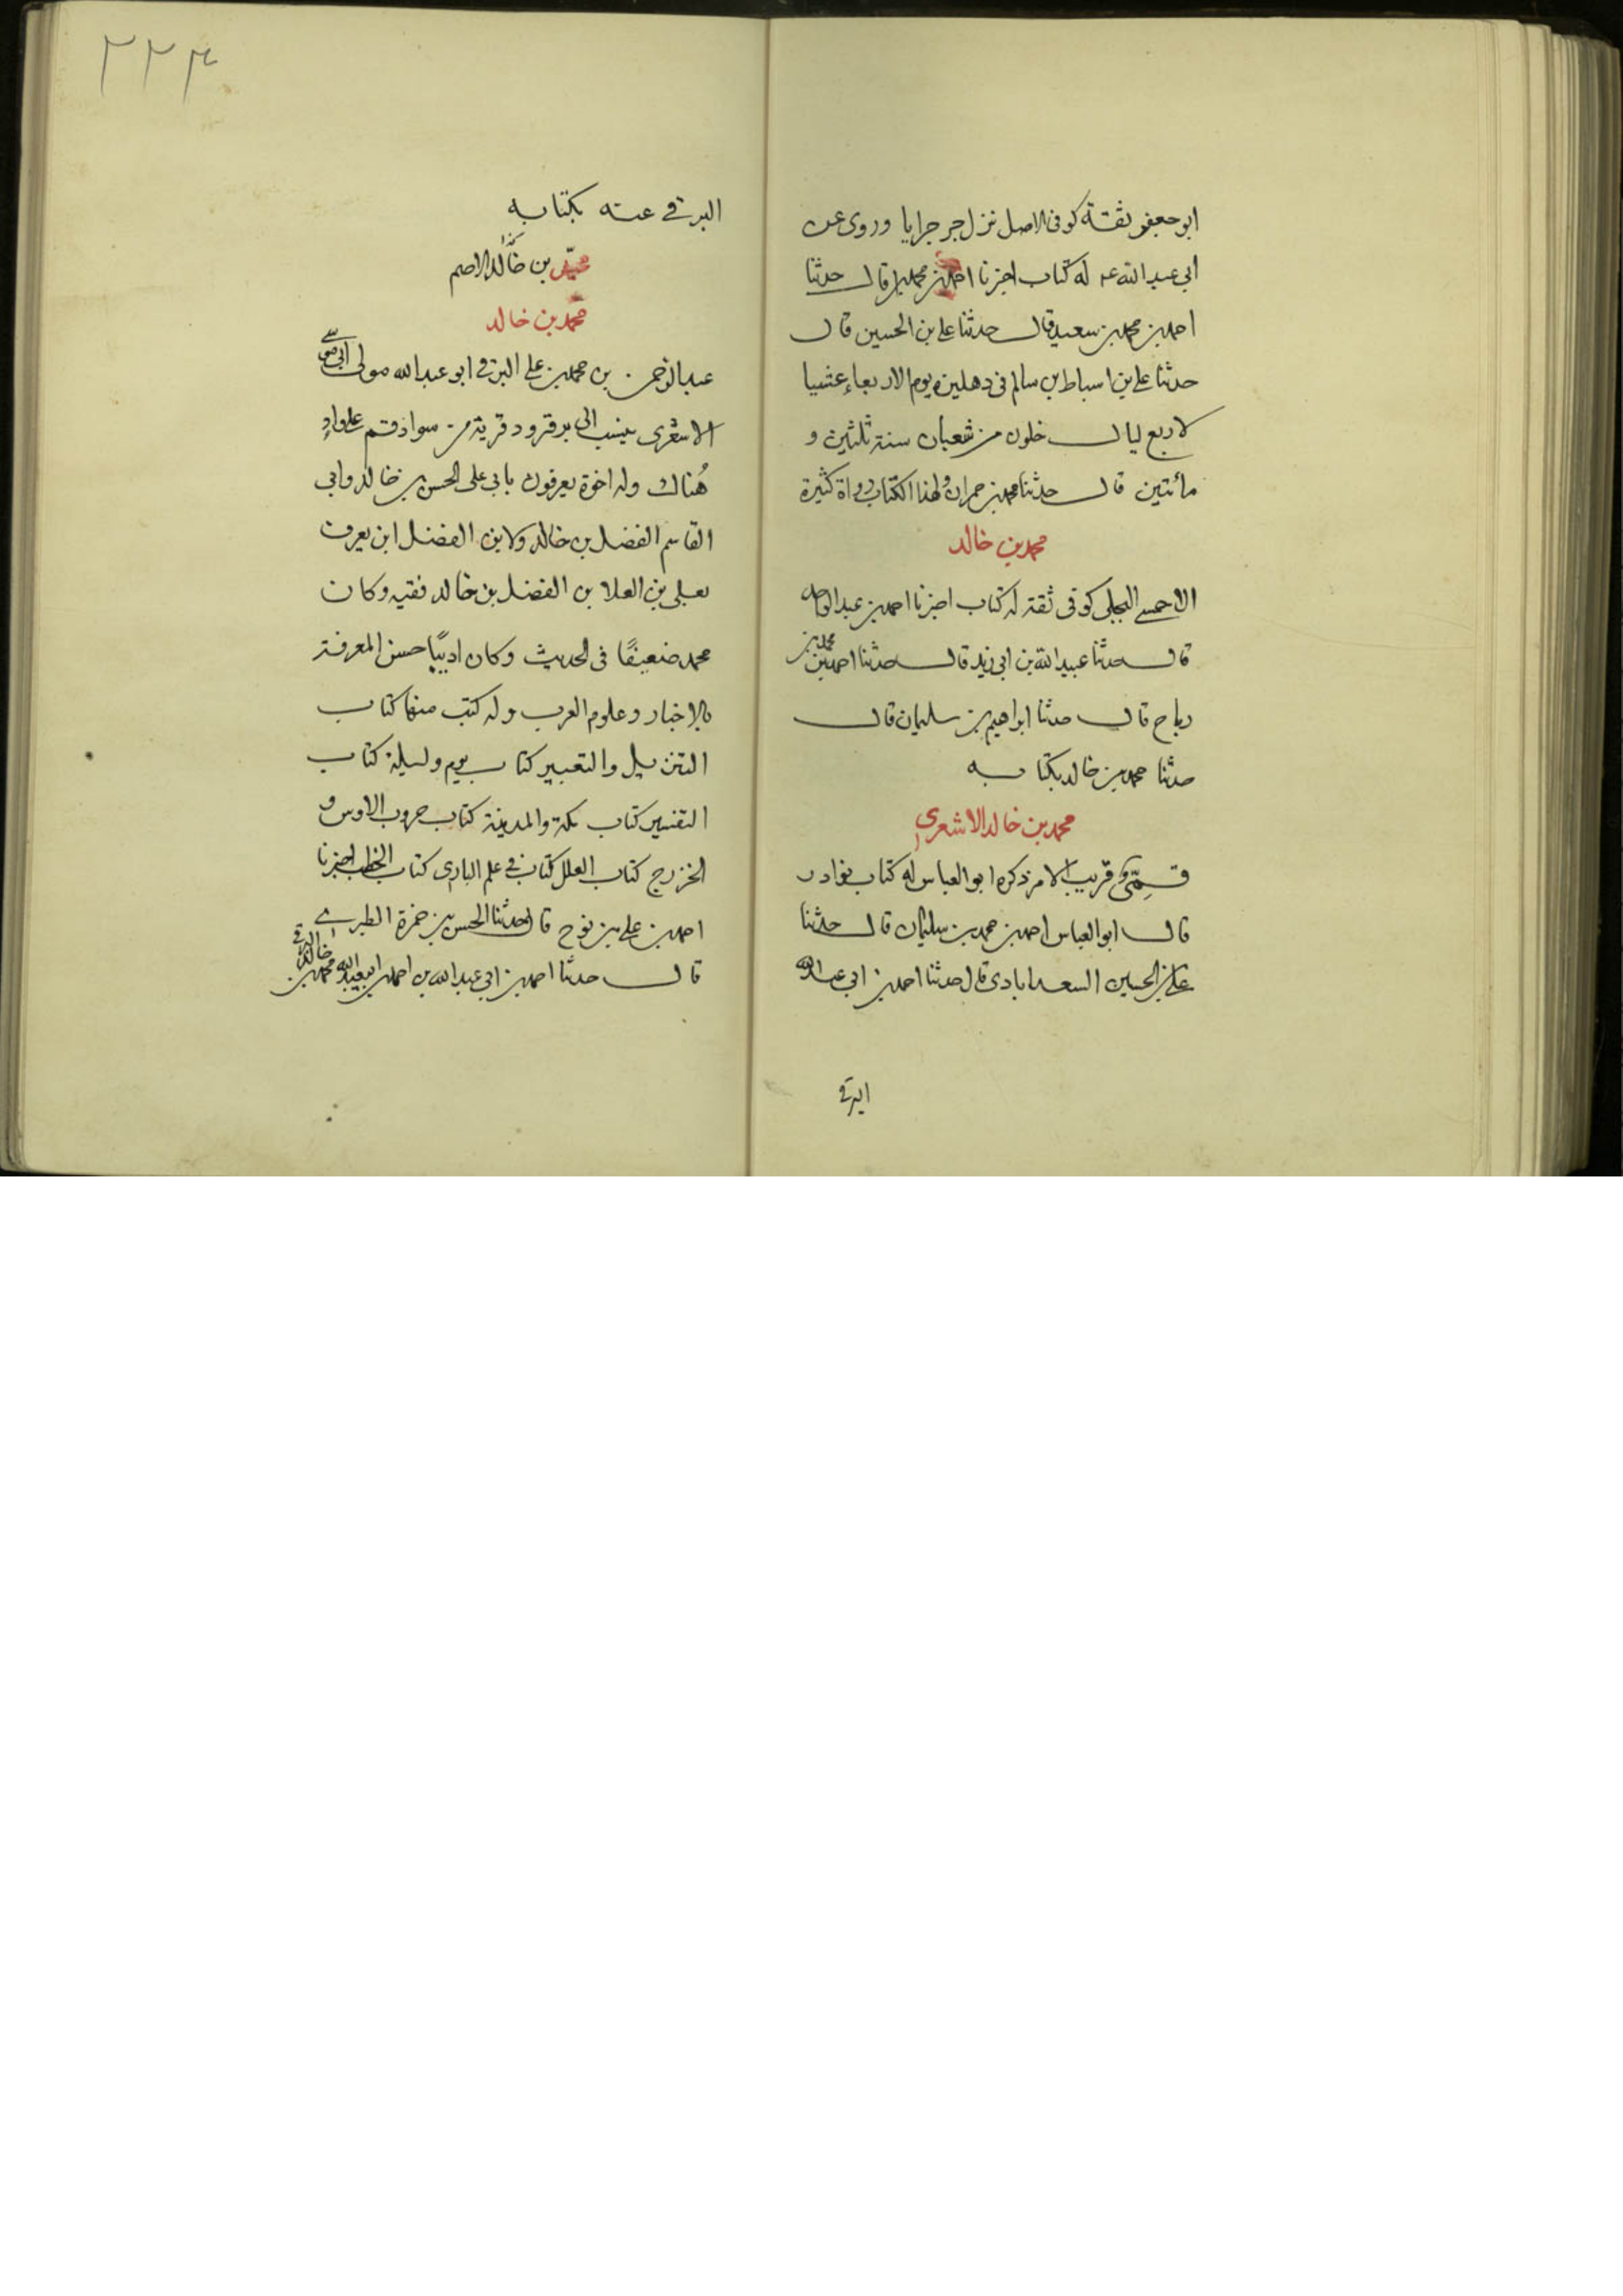 ابو جعفر ثقة كوفى الاصل نزل جرجرايا وروى عن
ابى عبد الله عـ له كتاب اخبرنا احمد بن محمد قال حدثنا
احمد بن محمد بن سعيد قال حدثنا على بن الحسين قال
حدثنا على بن اسباط بن سالم فى دهليزه يوم الاربعاء عشيا
لاربع ليال خلون من شعبان سنة ثلثين و
مأتين قال حدثنا محمد بن حمران ولهذا الكتاب رواة كثيرة
محمد بن خالد
الاحمسى البجلى كوفى ثقة له كتاب اخبرنا احمد بن عبد الواحد
قال حدثنا عبيد الله بن ابى زيد قال حدثنا احمد بن محمد بن
رباح قال حدثنا ابراهيم بن سليمان قال
حدثنا محمد بن خالد بكتابه
محمد بن خالد الاشعرى
قمِّى قريب الامر ذكره ابو العباس له كتاب نوادر
قال ابو العباس احمد بن محمد بن سليمان قال حدثنا
على بن الحسين السعدابادى قال حدثنا احمد بن ابى عبد الله
البرقى
٢٢٤
البرقى عنه بكتابه
محمّد بن خالد الاصم
محمّد بن خالد
عبد الرحمن بن محمد بن على البرقى ابو عبد الله مولى ابى موسى
الاشعرى ينسب الى برقرود قرية من سواد قم على واد
هُناك وله اخوة يعرفون بابى على الحسن بن خالد وابى
القاسم الفضل بن خالد ولابن الفضل ابن يعرف
بعلى بن العلا بن الفضل بن خالد فقيه وكان
محمد ضعيفًا فى الحديث وكان اديبًا حسن المعرفة
بالاخبار وعلوم العرب وله كتب منها كتاب
التنزيل والتعبير كتاب يوم وليلة كتاب
التفسير كتاب مكة والمدينة كتاب حروب الاوس و
الخزرج كتاب العلل كتاب فى علم البارى كتاب الخطب اخبرنا
احمد بن على بن نوح قال حدثنا الحسن بن حمزة الطبرى
قال حدثنا احمد بن ابى عبد الله بن احمد ابى عبد الله محمد بن خالد البرقى